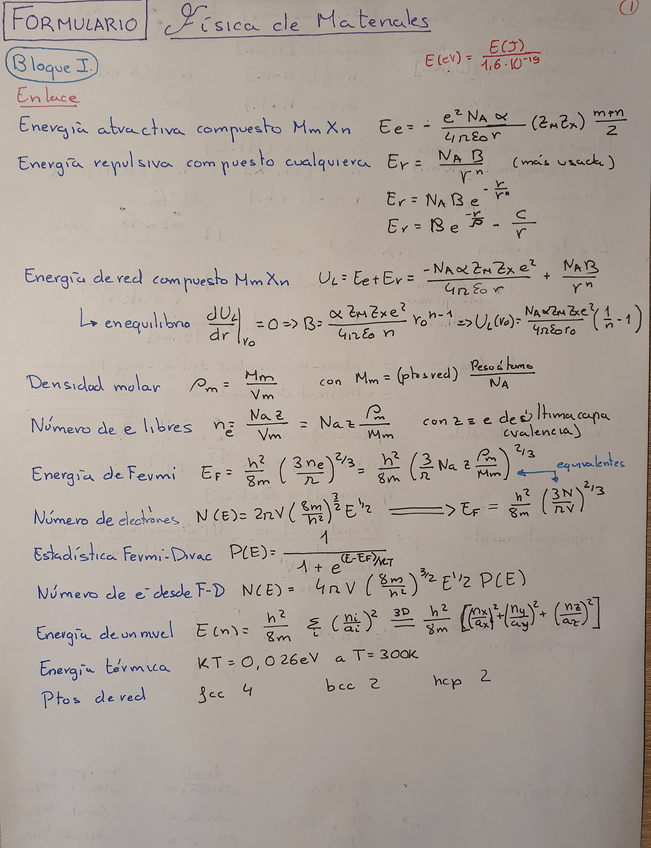 FORMULARIO Física de Materiales ①
Bloque I.
E(eV) = E(J) / 1,6·10⁻¹⁹
Enlace
Energía atractiva compuesto MmXn Ee = - (e² NA α / 4πε₀r) (ZM ZX) (m+n)/2
Energía repulsiva compuesto cualquiera Er = NA B / rⁿ (más usada)
Er = NA B e
Er = B e - C/r
Energía de red compuesto MmXn UL = Ee + Er = -NA α ZM ZX e² / 4πε₀r + NA B / rⁿ
↳ en equilibrio dUL/dr |r₀ = 0 => B = (α ZM ZX e² / 4πε₀ n) r₀ⁿ⁻¹ => UL(r₀) = (NA α ZM ZX e² / 4πε₀r₀) (1/n - 1)
Densidad molar ρm = Mm / Vm con Mm = (ptos red) Peso átomo / NA
Número de e libres ne⁻ = Na z / Vm = Na z ρm / Mm con z = e de última capa (valencia)
Energía de Fermi EF = h²/8m (3 ne / π)^2/3 = h²/8m (3/π Na z ρm/Mm)^2/3 equivalentes
Número de electrones N(E) = 2πV (8m/h²)^3/2 E^1/2 ⟶ EF = h²/8m (3N/πV)^2/3
Estadística Fermi-Dirac P(E) = 1 / (1 + e^(E-EF)/KT)
Número de e⁻ desde F-D N(E) = 4πV (8m/h²)^3/2 E^1/2 P(E)
Energía de un nivel E(n) = h²/8m Σi (ni/ai)² 3D = h²/8m [(nx/ax)² + (ny/ay)² + (nz/az)²]
Energía térmica KT = 0,026eV a T = 300K
Ptos de red fcc 4 bcc 2 hcp 2